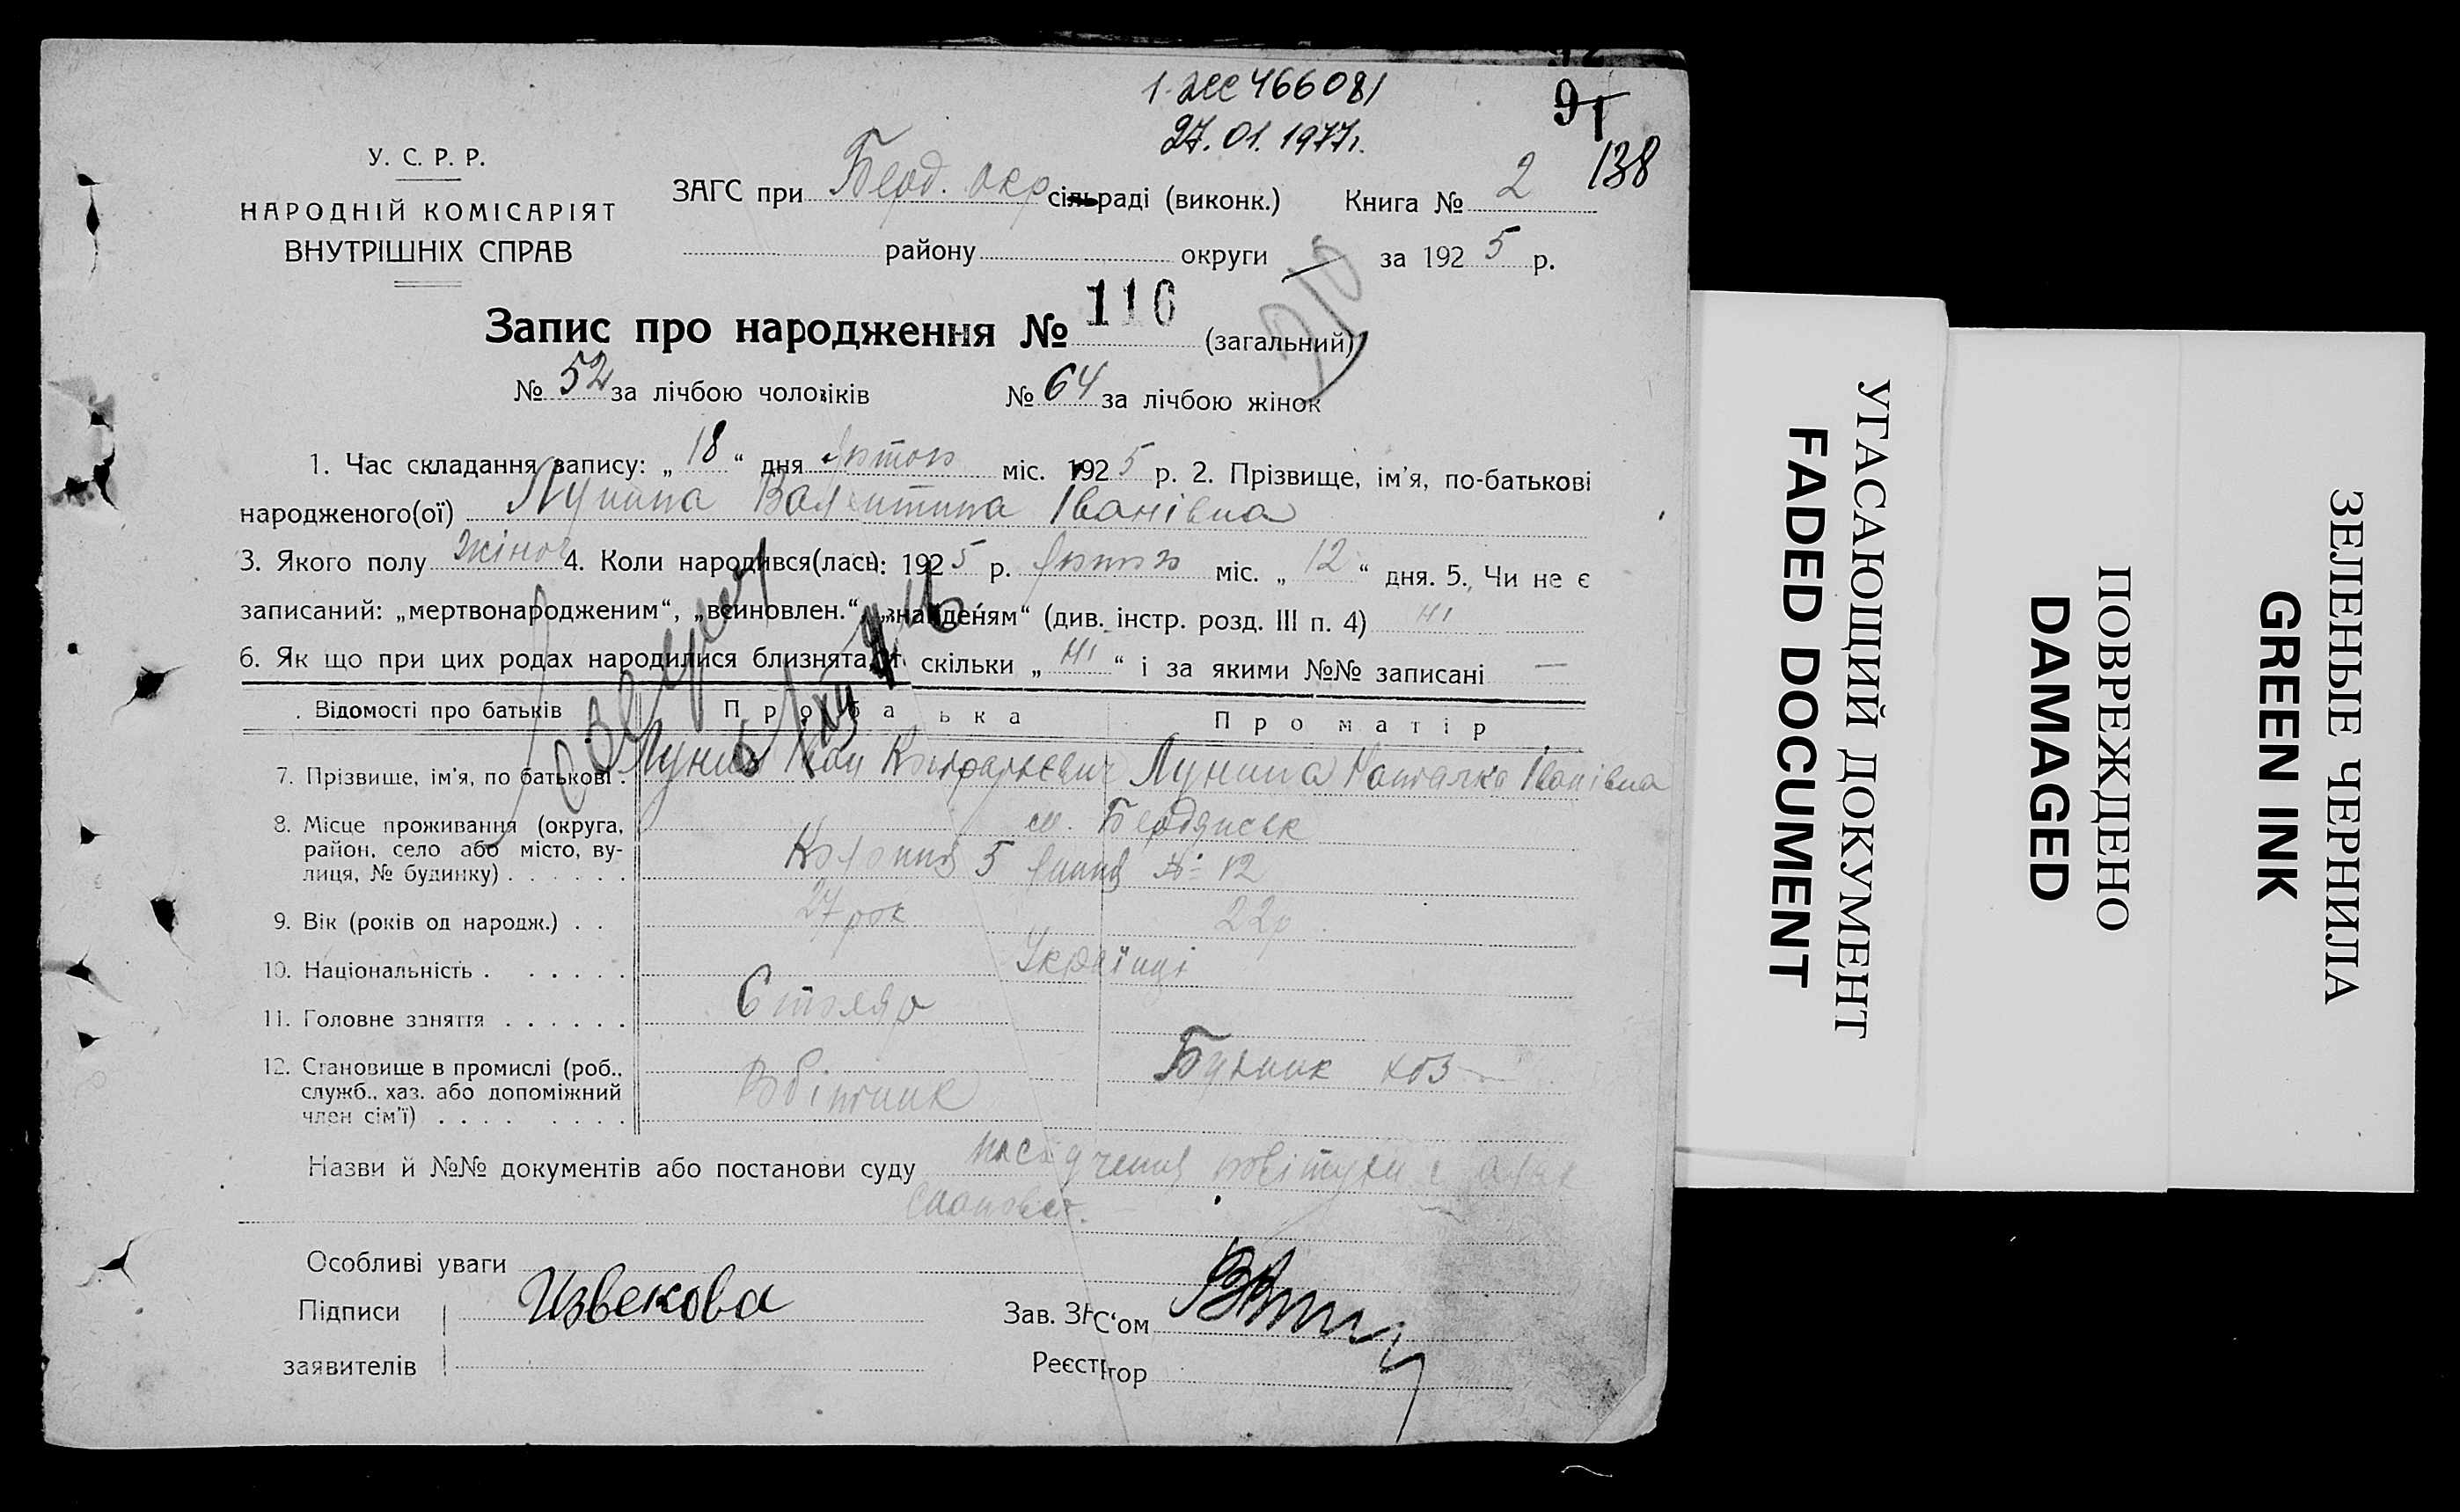 1-ЖС 466081
91
27.01.1977г.
138
У. С. Р. Р.
НАРОДНІЙ КОМІСАРІЯТ
ВНУТРІШНІХ СПРАВ
ЗАГС при Берд. окр сільраді (виконк.) Книга № 2
району округи — за 1925 р.
210
Запис про народження № 116 (загальний)
№ 52 за лічбою чоловіків № 64 за лічбою жінок
1. Час складання запису: „18“ дня лютого міс. 1925 р. 2. Прізвище, ім’я, по-батькові
народженого(ої) Лунина Валентина Іванівна
3. Якого полу жіноч 4. Коли народився(лась): 1925 р. лютого міс. „12“ дня. 5. Чи не є
записаний: „мертвонародженим“, „всиновлен.“, „знайденям“ (див. інстр. розд. III п. 4) ні
6. Як що при цих родах народилися близнята, то скільки „ні“ і за якими №№ записані —
Відомості про батьків Про батька Про матір
7. Прізвище, ім’я, по батькові . Лунин Іван Лунина Наталка Іванівна
8. Місце проживання (округа, район, село або місто, вулиця, № будинку) . . . . . . м. Бердянськ
Колонія 5 линия № 12
9. Вік (років од народж.) . . 27 рок 22 р
10. Національність . . . . . . Українці
11. Головне заняття . . . . . . Столяр
12. Становище в промислі (роб., служб., хаз. або допоміжний член сім’ї) . . . . . . . . Робітник
Назви й №№ документів або постанови суду
Особливі уваги
Підписи Извекова Зав. ЗАГС‘ом
заявителів Реєстратор
УГАСАЮЩИЙ ДОКУМЕНТ
FADED DOCUMENT
ПОВРЕЖДЕНО
DAMAGED
ЗЕЛЕННЫЕ ЧЕРНИЛА
GREEN INK